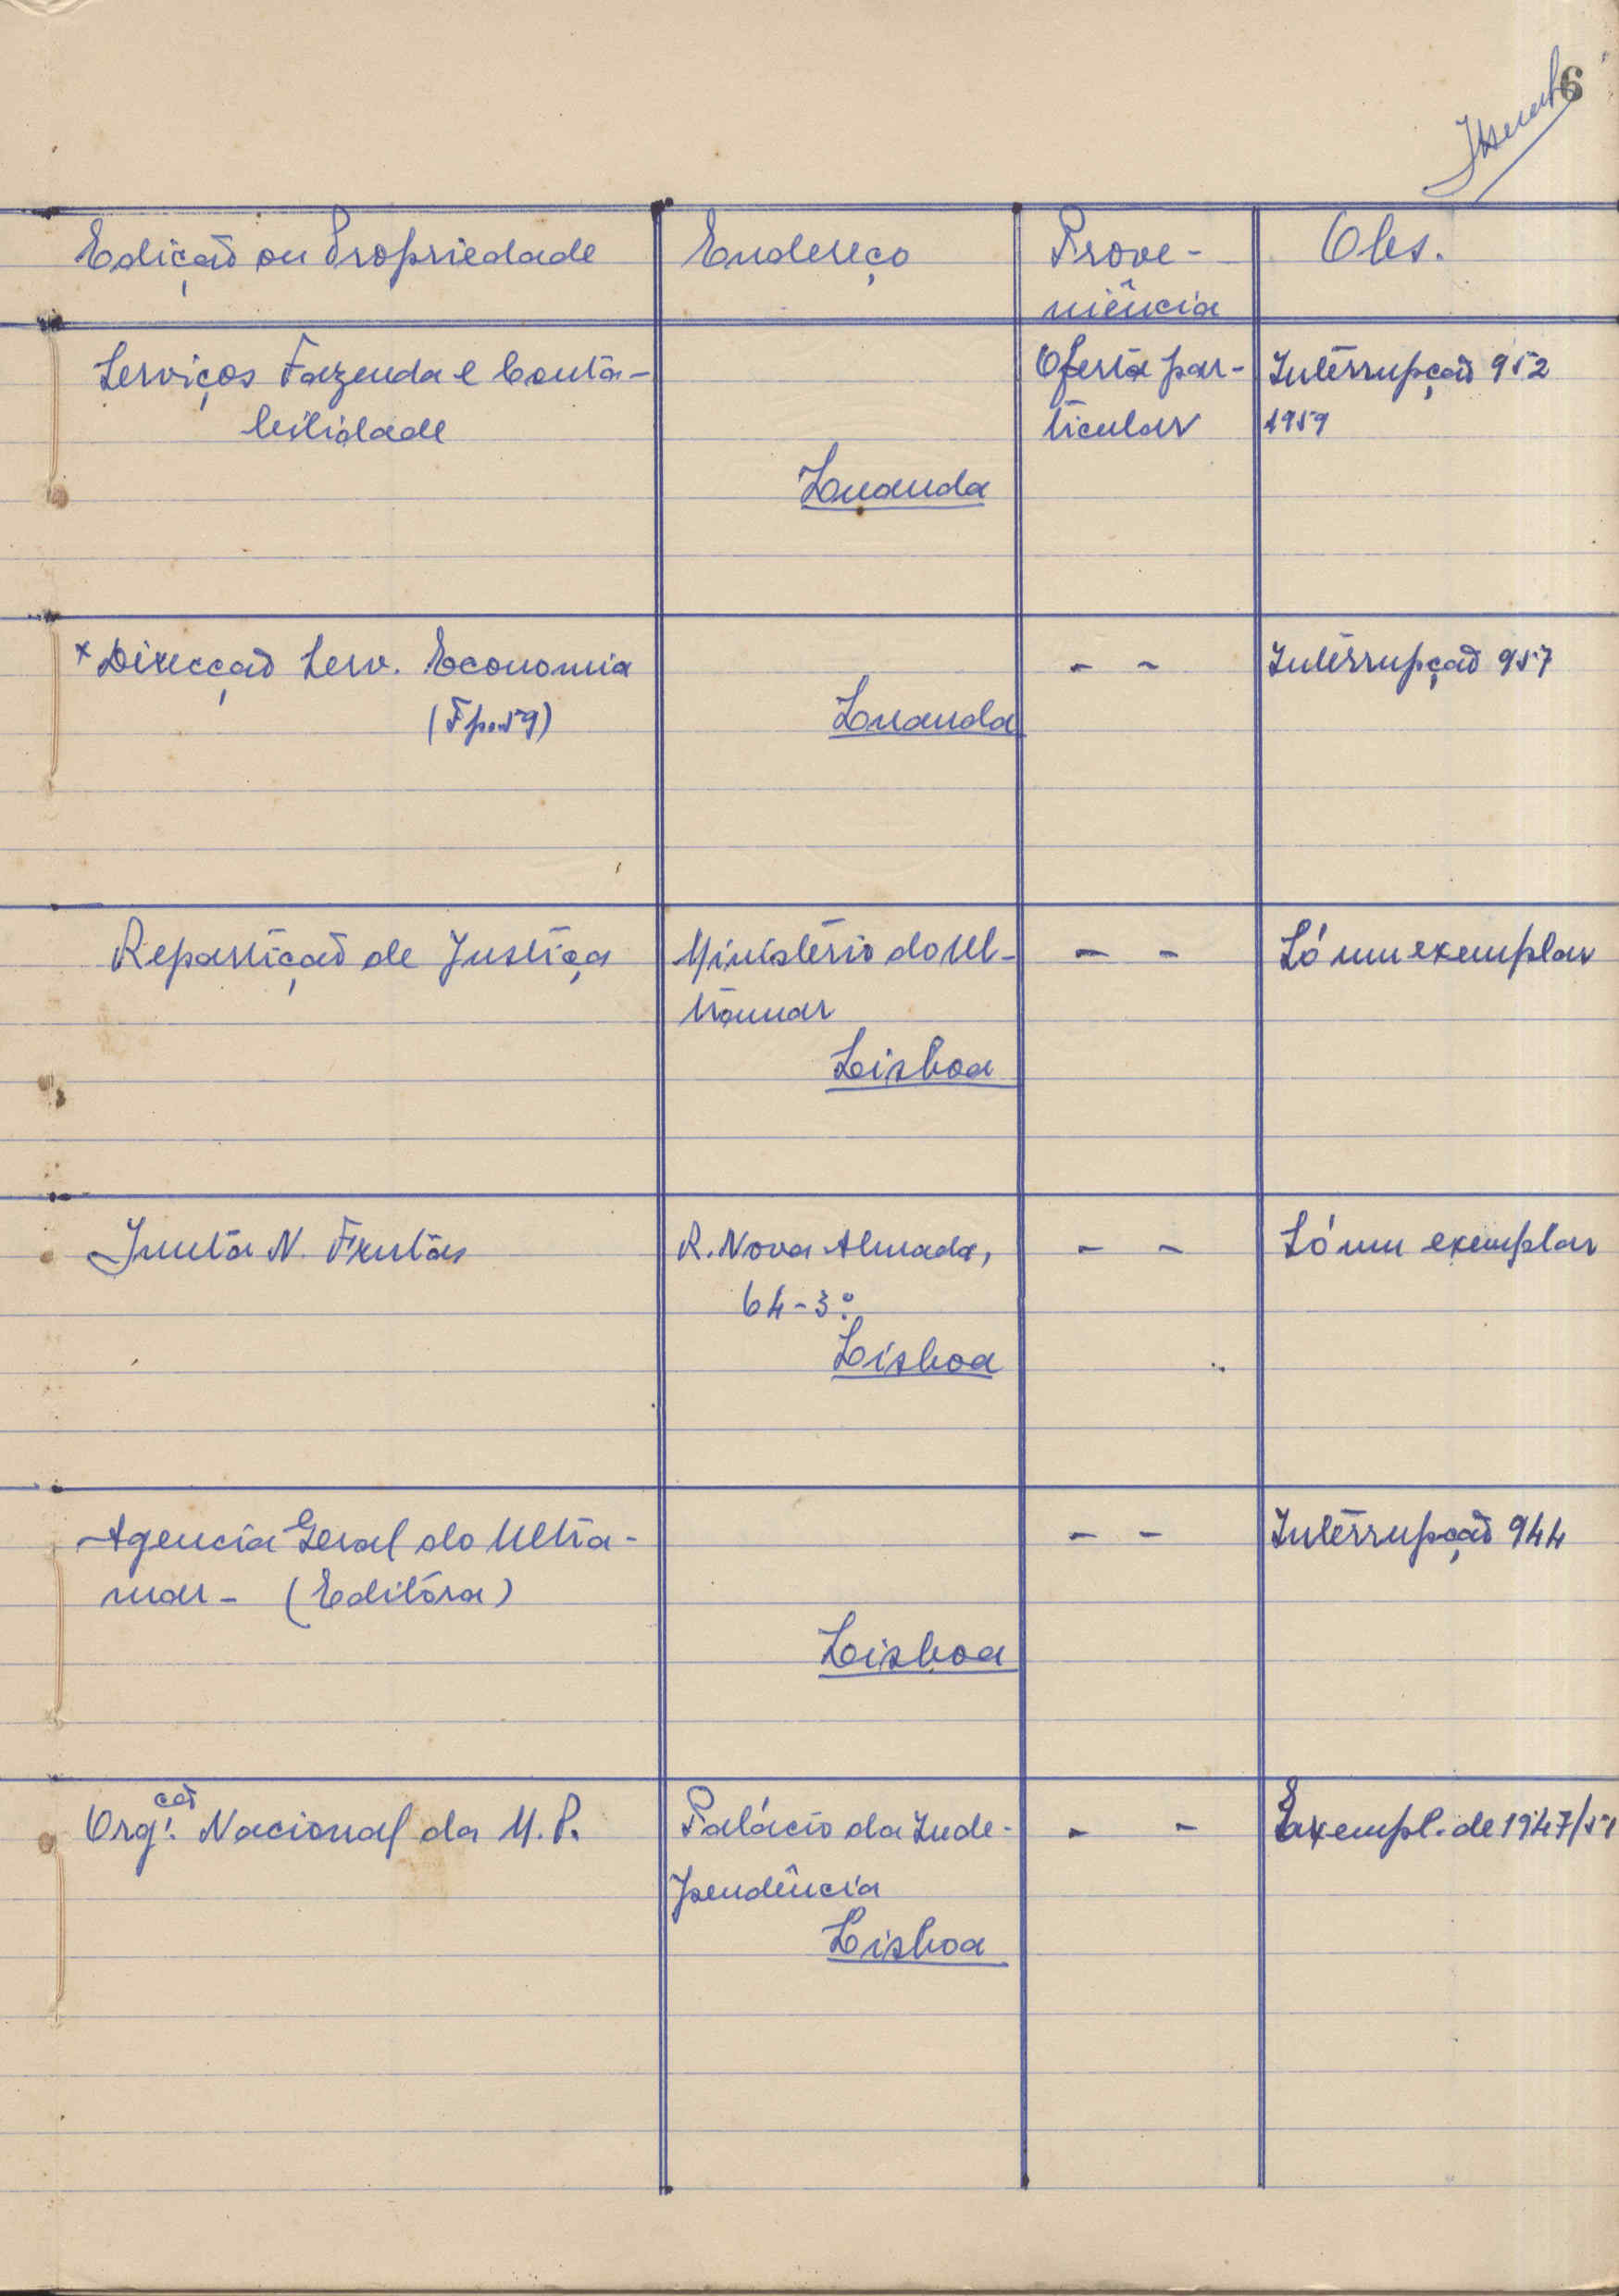 6
Edição ou Propriedade
Endereço
Prove-
niência
Obs.
Serviços Fazenda e Conta-
bilidade
Luanda
Oferta par-
ticular
Interrupção 952
1959
x Direcção Serv. Economia
(Fp.59)
Luanda
- -
Interrupção 957
Repartição de Justiça
Ministério do Ul-
tramar
Lisboa
- -
Só um exemplar
Junta N. Frutas
R. Nova Almada,
64-3º.
Lisboa
- -
Só um exemplar
Agencia Geral do Ultra-
mar - (Editora)
Lisboa
- -
Interrupção 944
Orgºção. Nacional da M. P.
Palácio da Inde-
pendência
Lisboa
- -
Exempl. de 1947/51